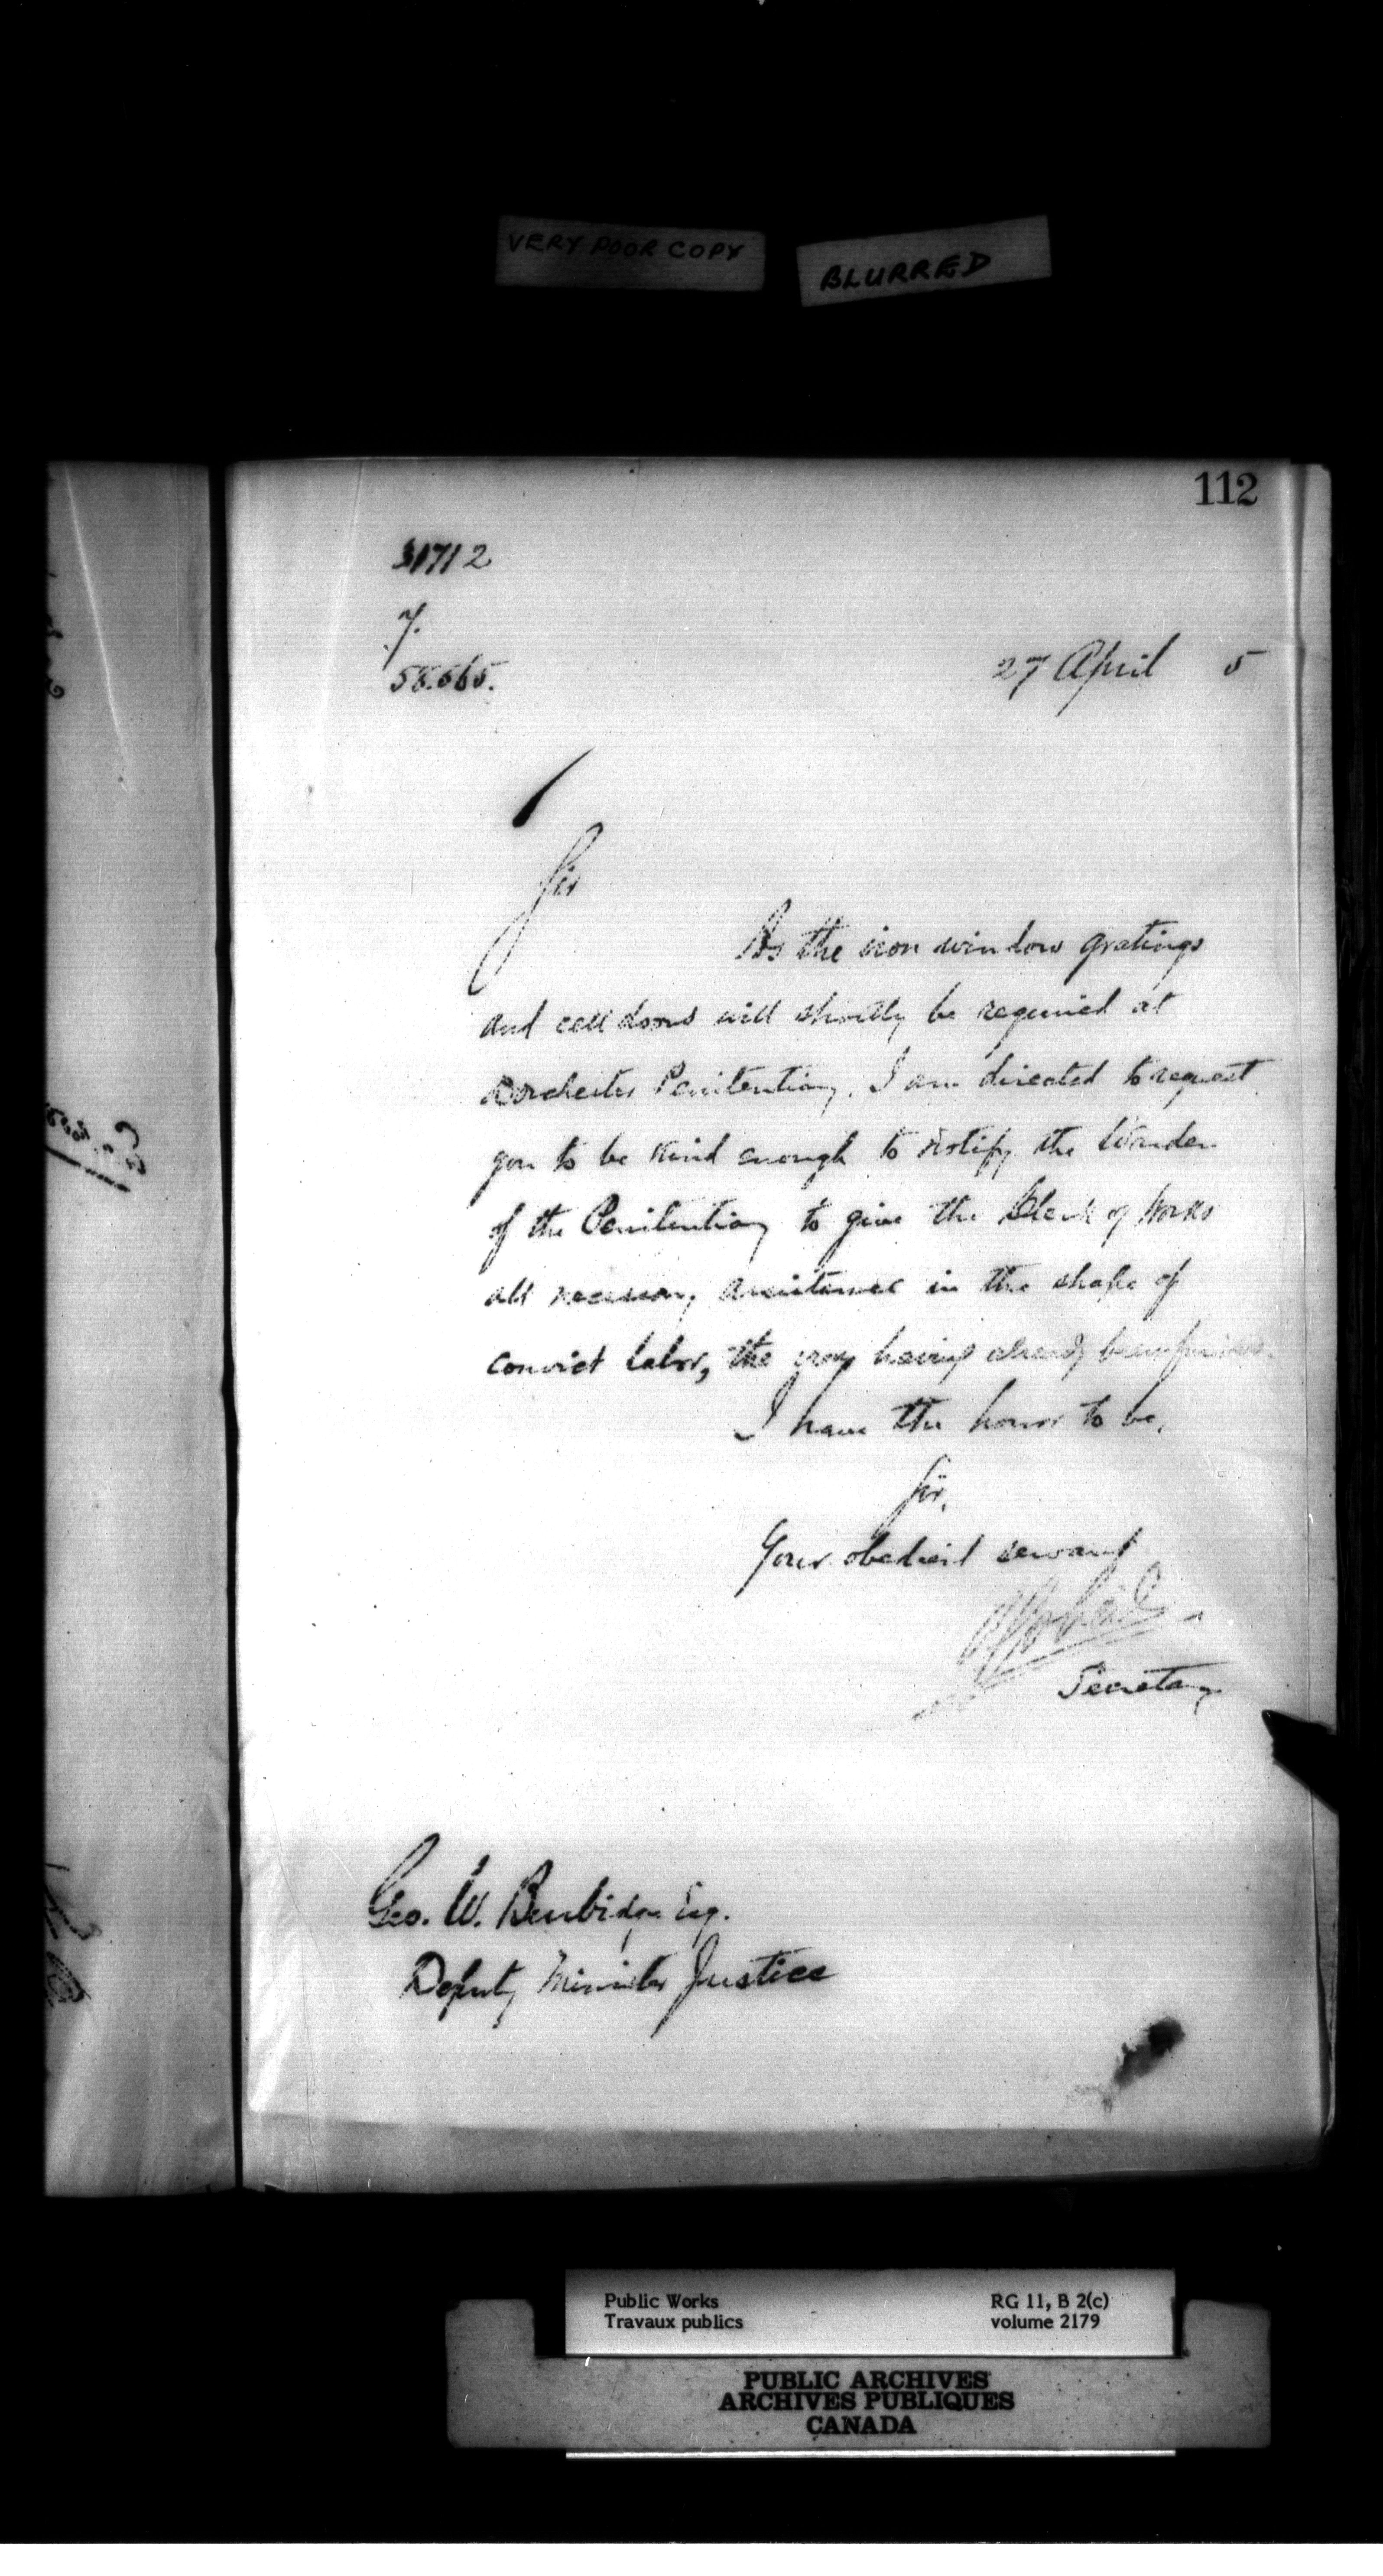 VERY POOR COPY
BLURRED
112
31712
7.
58.565.
27 April 5
Sir
As the iron window gratings
and cell doors will shortly be required at
Dorchester Penitentiary. I am directed to request
you to be kind enough to notify the Warden
of the Penitentiary to give the Clerk of Works
all necessary assistance in the shape of
convict labor, the iron having already been
I have the honor to be,
Sir,
Your obedient servant
Secretary
Geo. W. Burbidge Esq.
Deputy Minister Justice
Public Works
Travaux publics
RG 11, B 2(c)
volume 2179
PUBLIC ARCHIVES
ARCHIVES PUBLIQUES
CANADA